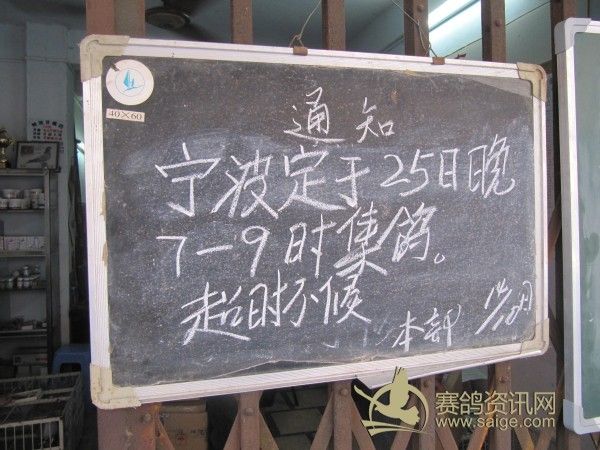 40×60
通知
宁波定于25日晚
7-9时集鸽。
超时不候
本部
赛鸽资讯网
www.saige.com